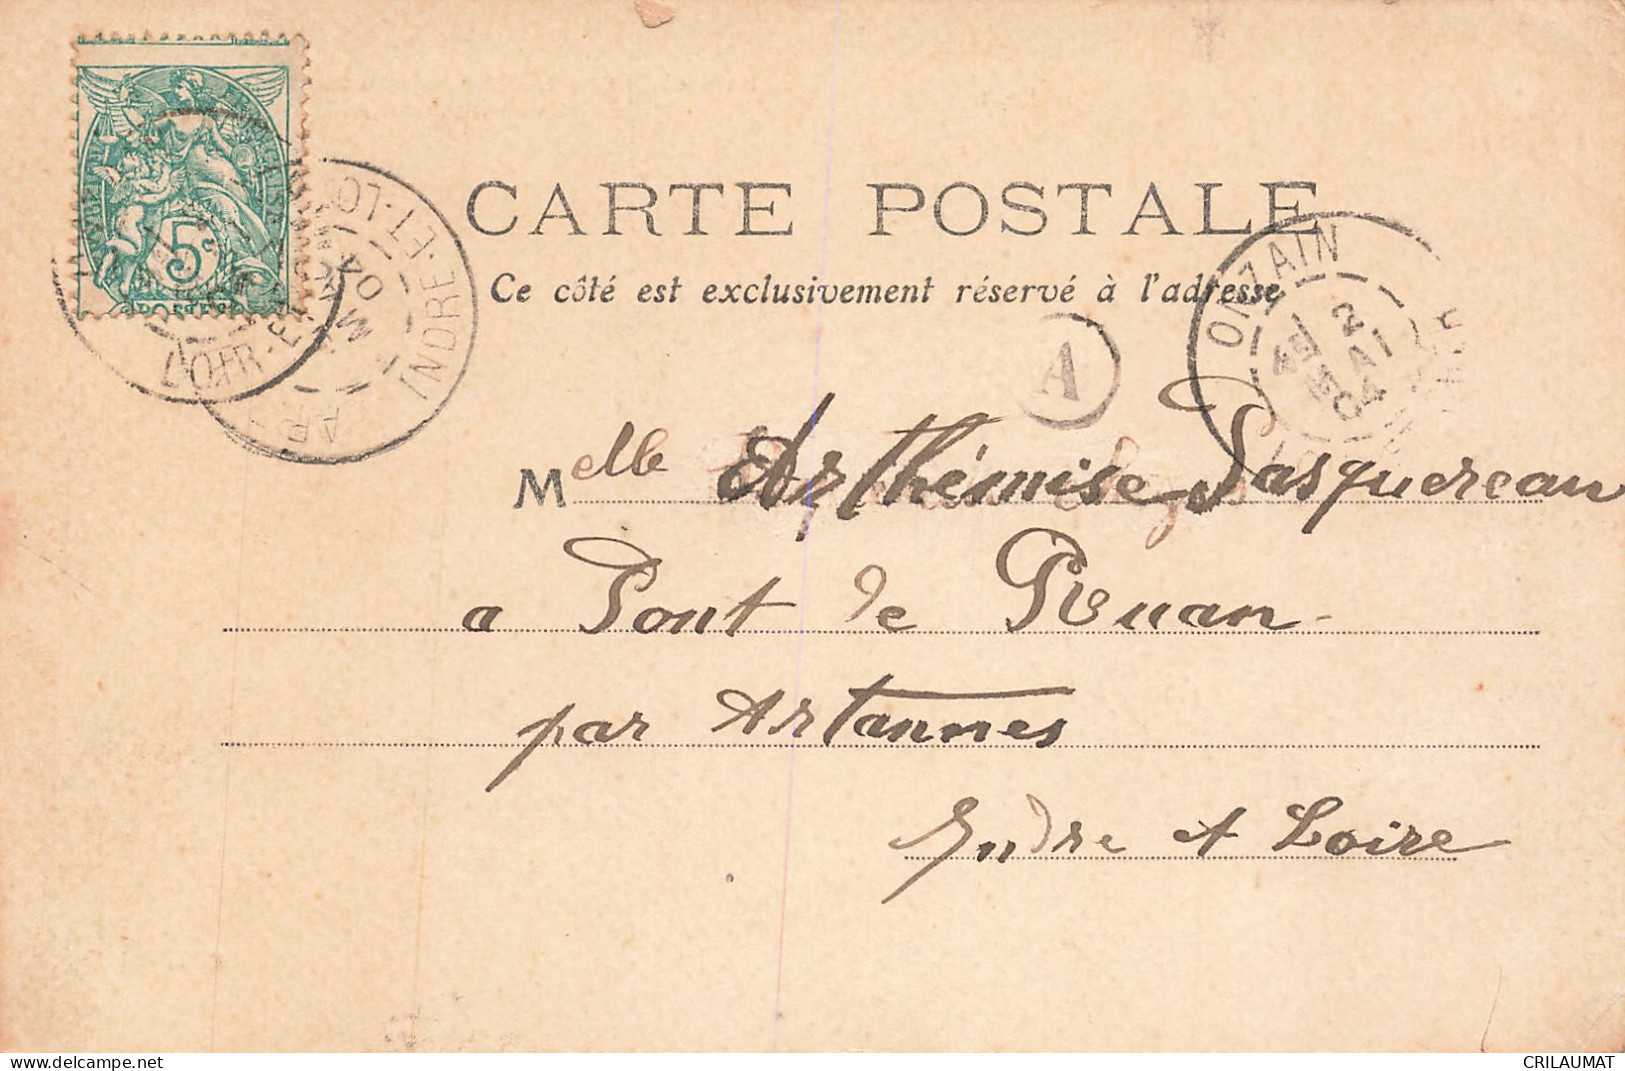 CARTE POSTALE
Ce côté est exclusivement réservé à l'adresse
5c
POSTES
LOIR-ET-
INDRE-ET-LOI
ONZAIN
2
MAI
04
A
Melle Arthémise Pasquereau
a Pont de Ruan
par Artannes
Indre et Loire
www.delcampe.net
CRILAUMAT